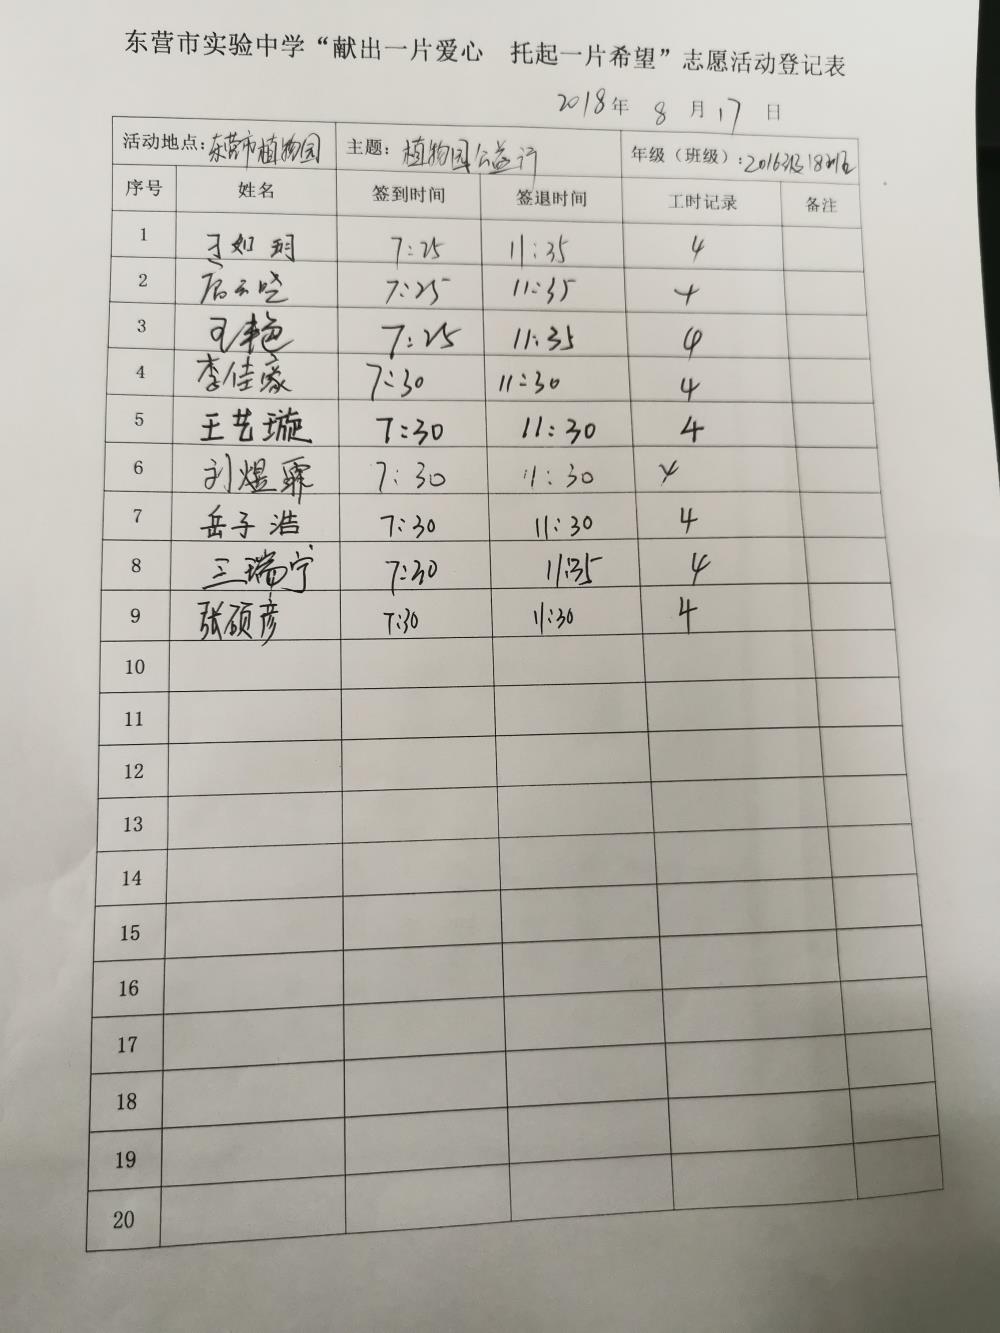 东营市实验中学“献出一片爱心 托起一片希望”志愿活动登记表
2018年 8 月 17 日
活动地点：东营市植物园 主题：植物园公益行 年级（班级）：2016级18班
序号 姓名 签到时间 签退时间 工时记录 备注
1 于如玥 7:25 11:35 4
2 7:25 11:35 4
3 王艳 7:25 11:35 4
4 李佳豪 7:30 11:30 4
5 王艺璇 7:30 11:30 4
6 刘煜霏 7:30 11:30 4
7 岳子浩 7:30 11:30 4
8 王瑞宁 7:30 11:35 4
9 张硕彦 7:30 11:30 4
10
11
12
13
14
15
16
17
18
19
20